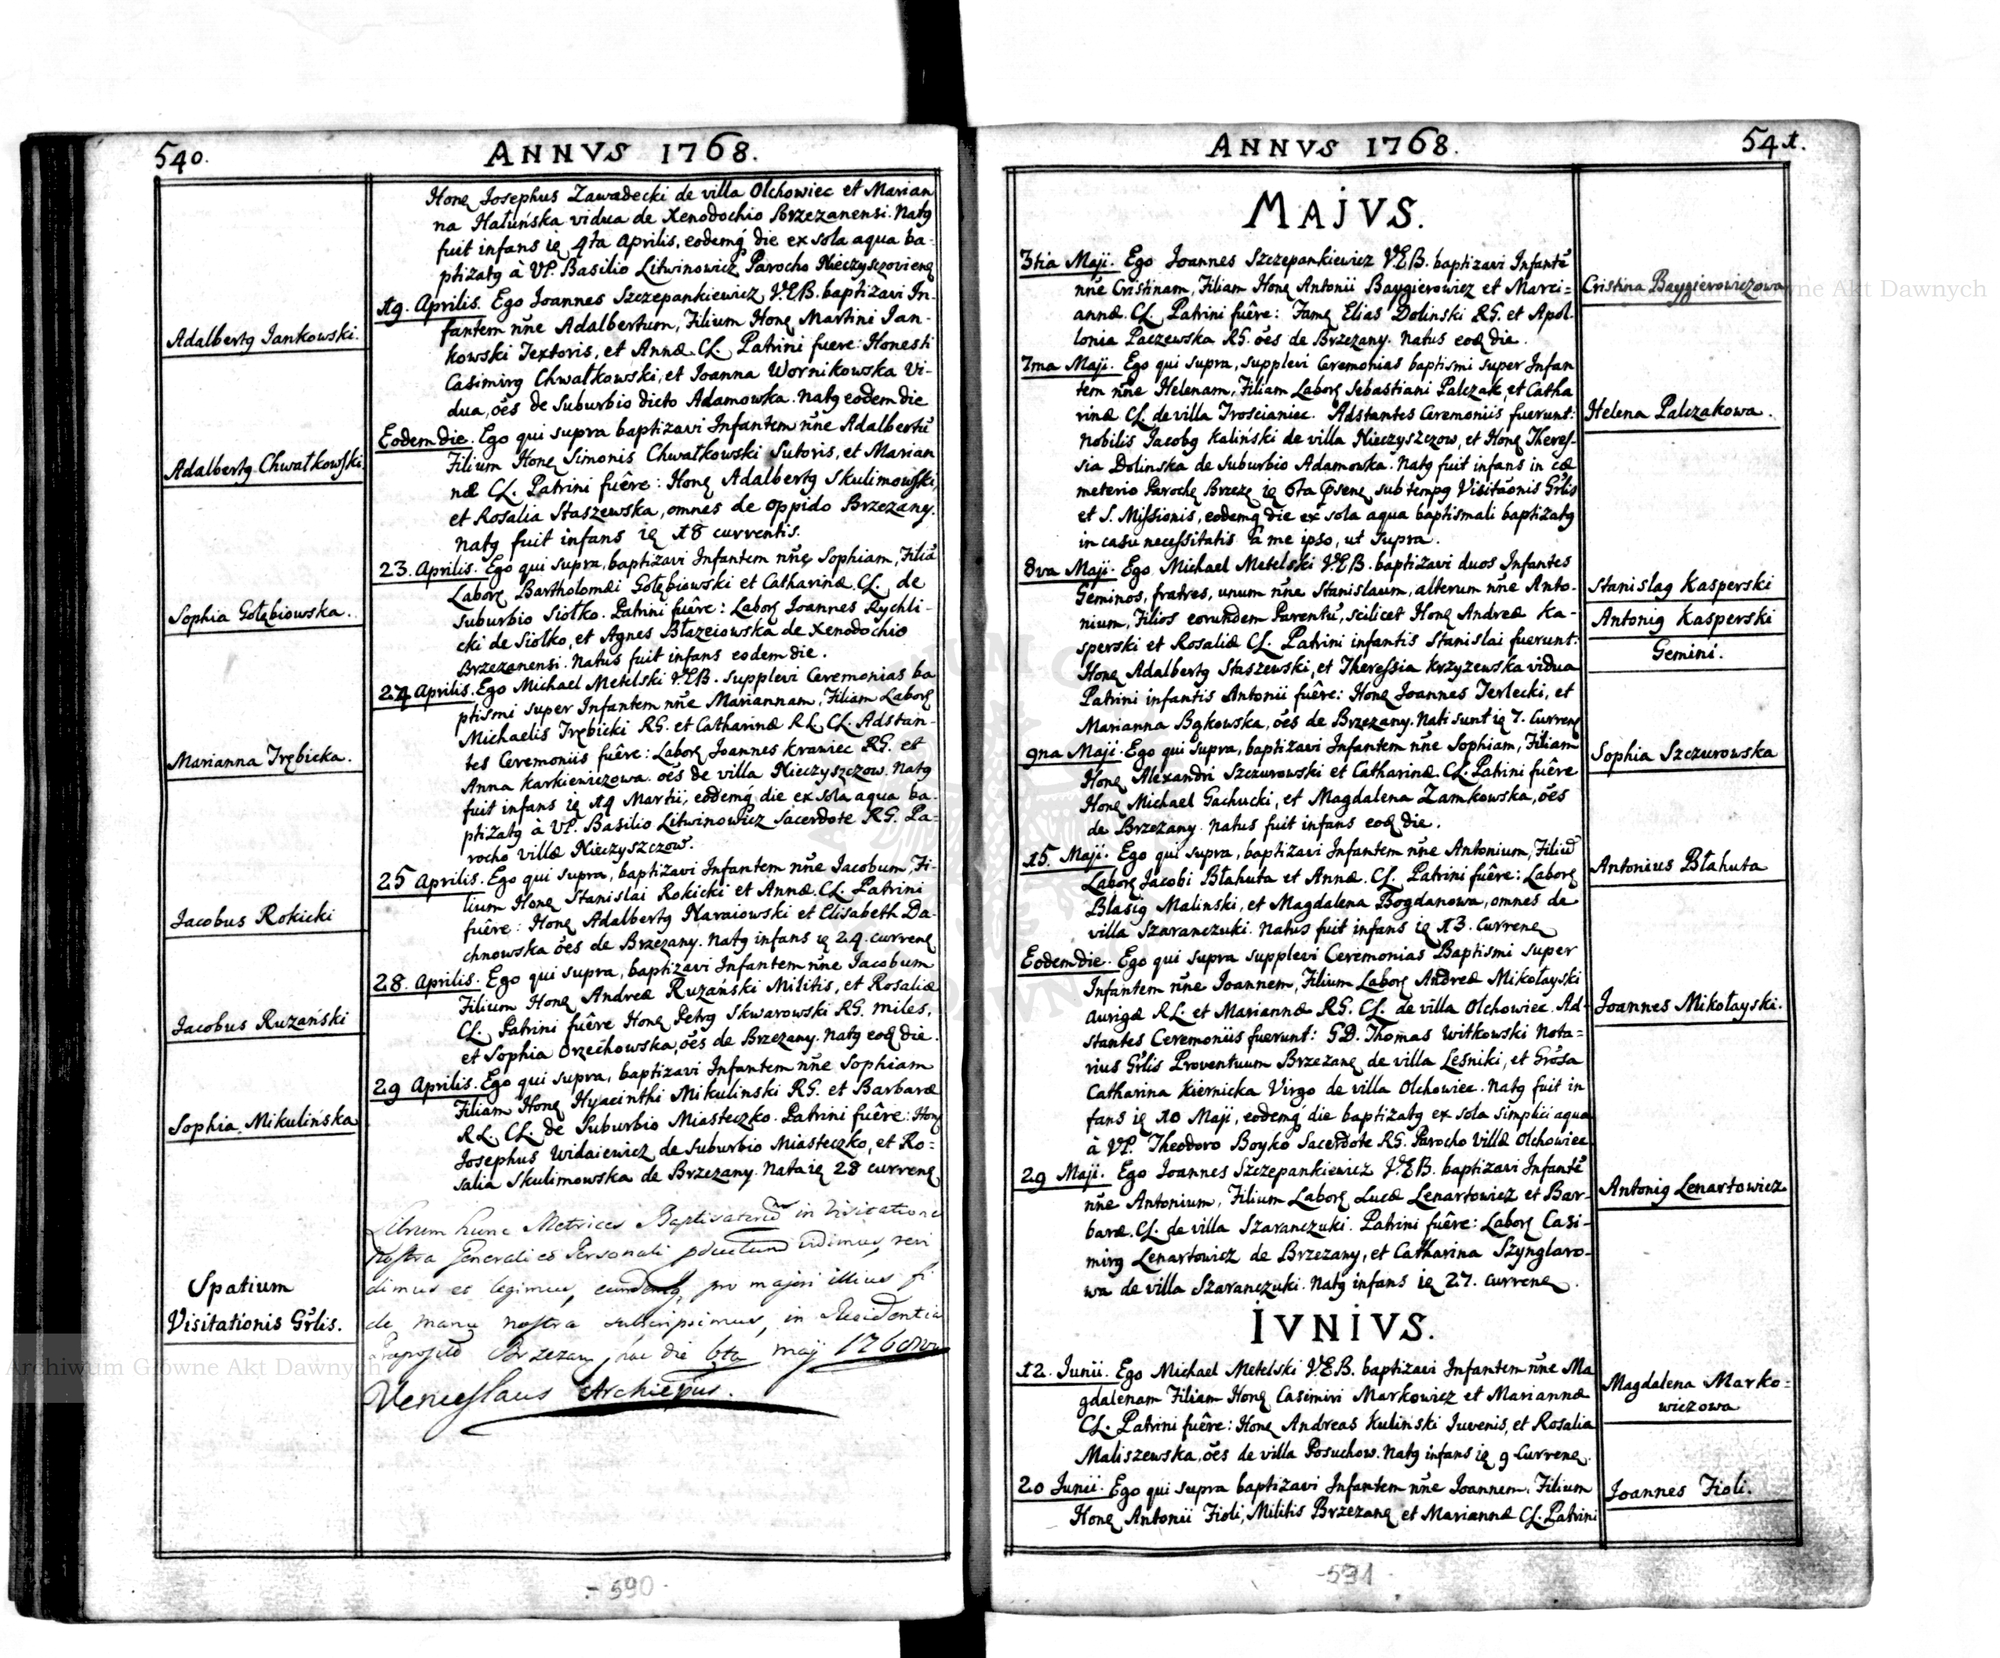 540.
ANNVS 1768.
Honꝰ Josephus Zawadecki de villa Olchowiec et Marian
na Hałuńska vidua de Xenodochio Brzezanensi. Natꝰ
fuit infans ie 4ta Aprilis, eodemq́ die ex sola aqua ba-
ptizatꝰ à VP. Basilio Litwinowicz Parocho Nieczyszovienꝰ
Adalbertꝰ Jankowski.
19. Aprilis. Ego Joannes Szczepankiewicz V.EB. baptizavi In-
fantem nñe Adalbertum, Filium Honꝰ Martini Jan-
kowski Textoris, et Annæ. CL. Patrini fuere: Honesti
Casimirꝰ Chwałkowski, et Joanna Wornikowska vi-
dua, oēs de Suburbio dicto Adamowka. Natꝰ eodem die
Adalbertꝰ Chwałkowski.
Eodem die. Ego qui supra baptizavi Infantem nñe Adalbertū
Filium Honꝰ Simonis Chwałkowski Sutoris, et Marian
næ CL. Patrini fuêre: Honꝰ Adalbertꝰ Skulimowski,
et Rosalia Staszewska, omnes de Oppido Brzezany.
Natꝰ fuit infans ie 18 currentis.
Sophia Gołębiowska.
23. Aprilis. Ego qui supra, baptizavi Infantem nñe Sophiam, Filiā
Laborꝰ Bartholomæi Gołębiowski et Catharinæ. CL. de
Suburbio Siołko. Patrini fuêre: Laborꝰ Joannes Rychli-
cki de Siolko, et Agnes Błazeiowska de Xenodochio
Brzezanensi. Natus fuit infans eodem die.
Marianna Trębicka.
24 Aprilis. Ego Michael Metelski V.EB. supplevi Ceremonias ba
ptismi super Infantem nñe Mariannam, Filiam Laborꝰ
Michaelis Trębicki RG. et Catharinæ R.L. CL. Adstan-
tes Ceremoniis fuêre: Laborꝰ Joannes Krawiec RG. et
Anna Karkiewiczowa. oēs de villa Nieczyszczow. Natꝰ
fuit infans ie 14 Martii, eodemq́ die ex sola aqua ba-
ptizatꝰ à VP. Basilio Litwinowicz Sacerdote RG. Pa-
rocho villæ Nieczyszczow.
Jacobus Rokicki
25 Aprilis. Ego qui supra, baptizavi Infantem nñe Jacobum, Fi-
lium Honꝰ Stanislai Rokicki et Annæ. CL. Patrini
fuêre: Honꝰ Adalbertꝰ Naraiowski et Elisabeth Da-
chnowska oēs de Brzezany. Natꝰ infans ie 24. currenꝰ
Jacobus Ruzański
28. Aprilis. Ego qui supra, baptizavi Infantem nñe Jacobum
Filium Honꝰ Andreæ Ruzański Militis, et Rosaliæ
CL. Patrini fuêre Honꝰ Petrꝰ Skwarowski RG. miles,
et Sophia Orzechowska, oēs de Brzezany. Natꝰ eoꝰ die.
Sophia Mikulińska
29 Aprilis. Ego qui supra, baptizavi Infantem nñe Sophiam
Filiam Honꝰ Hyacinthi Mikulinski RG. et Barbaræ
R.L. CL. de Suburbio Miasteczko. Patrini fuêre: Honꝰ
Josephus Widaiewicz de Suburbio Miasteczko, et Ro-
salia Skulimowska de Brzezany. Nata ie 28 currenꝰ
Spatium
Visitationis Grlis.
Librum hunc Metrices Baptisatorum in Visitatione
Nostra Generali et Personali vidimus, revi
dimus et legimus, eundemq, pro majori illius fi
de manu nostra subscripsimus, in Residentia
Brzezan, hac die 6ta maij 1768vo
Venceslaus Archiepus.
- 590 -
ANNVS 1768.
541.
MAJVS.
3tia Maji. Ego Joannes Szczepankiewicz V.EB. baptizavi Infantē
nñe Cristinam, Filiam Honꝰ Antonii Baygierowicz et Marci-
annæ. CL. Patrini fuêre: Famꝰ Elias Dolinski RG. et Apol-
lonia Paczewska RG. oēs de Brzezany. Natus eoꝰ die.
Cristina Baygierowiczowa
7ma Maji. Ego qui supra, supplevi Ceremonias baptismi super Infan
tem nñe Helenam, Filiam Laborꝰ Sebastiani Palczak, et Catha
rinæ CL. de villa Troscianiec. Adstantes Ceremoniis fuerunt:
Nobilis Jacobꝰ Kaliński de villa Nieczyszczow, et Honꝰ Theres-
sia Dolinska de Suburbio Adamowka. Natꝰ fuit infans in cæ
meterio Parochꝰ Brzezꝰ ie 6ta Psenꝰ, sub tempꝰ Visitāonis Grlis
et S. Missionis, eodemq́ die ex sola aqua baptismali baptizatꝰ
in casu necessitatis à me ipso, ut supra.
Helena Palczakowa.
8va Maji. Ego Michael Metelski V.EB. baptizavi duos Infantes
Geminos, fratres, unum nñe Stanislaum, alterum nñe Anto-
nium, Filios eorundem Parentū, scilicet Honꝰ Andreæ Ka-
sperski et Rosaliæ CL. Patrini infantis Stanislai fuerunt:
Honꝰ Adalbertꝰ Staszewski, et Theressia Krzyzewska vidua
Patrini infantis Antonii fuêre: Honꝰ Joannes Terlecki, et
Marianna Bąkowska, oēs de Brzezany. Nati sunt ie 7. Currenꝰ
Stanislaꝰ Kasperski
Antoniꝰ Kasperski
Gemini.
9na Maji. Ego qui supra, baptizavi Infantem nñe Sophiam, Filiam
Honꝰ Alexandri Szczurowski et Catharinæ. CL. Patrini fuêre
Honꝰ Michael Gachucki, et Magdalena Zamkowska, oēs
de Brzezany. Natus fuit infans eoꝰ die.
Sophia Szczurowska
15 Maji. Ego qui supra, baptizavi Infantem nñe Antonium, Filiū
Laborꝰ Jacobi Błahuta et Annæ. CL. Patrini fuêre: Laborꝰ
Blasiꝰ Malinski, et Magdalena Bogdanowa, omnes de
villa Szaranczuki. Natus fuit infans ie 13. currenꝰ
Antonius Błahuta
Eodem die. Ego qui supra supplevi Ceremonias Baptismi super
Infantem nñe Joannem, Filium Laborꝰ Andreæ Mikołayski
Aurigæ R.L. et Mariannæ RG. CL. de villa Olchowiec. Ad-
stantes Ceremoniis fuerunt: GD. Thomas Witkowski Nota-
rius Grlis Proventuum Brzezanꝰ de villa Leśniki, et Grosa
Catharina Kiernicka Virgo de villa Olchowiec. Natꝰ fuit in
fans ie 10 Maji, eodemq́ die baptizatꝰ ex sola simplici aqua
à VP. Theodoro Boyko Sacerdote RG. Parocho villæ Olchowiec
Joannes Mikołayski.
29 Maji. Ego Joannes Szczepankiewicz V.EB. baptizavi Infantē
nñe Antonium, Filium Laborꝰ Lucæ Lenartowicz et Bar-
baræ. CL. de villa Szaranczuki. Patrini fuêre: Laborꝰ Casi-
mirꝰ Lenartowicz de Brzezany, et Catharina Szynglaro-
wa de villa Szaranczuki. Natꝰ infans ie 27. currenꝰ.
Antoniꝰ Lenartowicz
IVNIVS.
12. Junii. Ego Michael Metelski V.EB. baptizavi Infantem nñe Ma
gdalenam Filiam Honꝰ Casimiri Markowicz et Mariannæ
CL. Patrini fuêre: Honꝰ Andreas Kuliński Iuvenis, et Rosalia
Maliszewska, oēs de villa Posuchow. Natꝰ infans ie 9 Currenꝰ.
Magdalena Marko-
wiczowa
20 Junii. Ego qui supra baptizavi Infantem nñe Joannem. Filium
Honꝰ Antonii Fioli, Militis Brzezanꝰ et Mariannæ CL. Patrini
Joannes Fioli.
-531-
Archiwum Główne Akt Dawnych